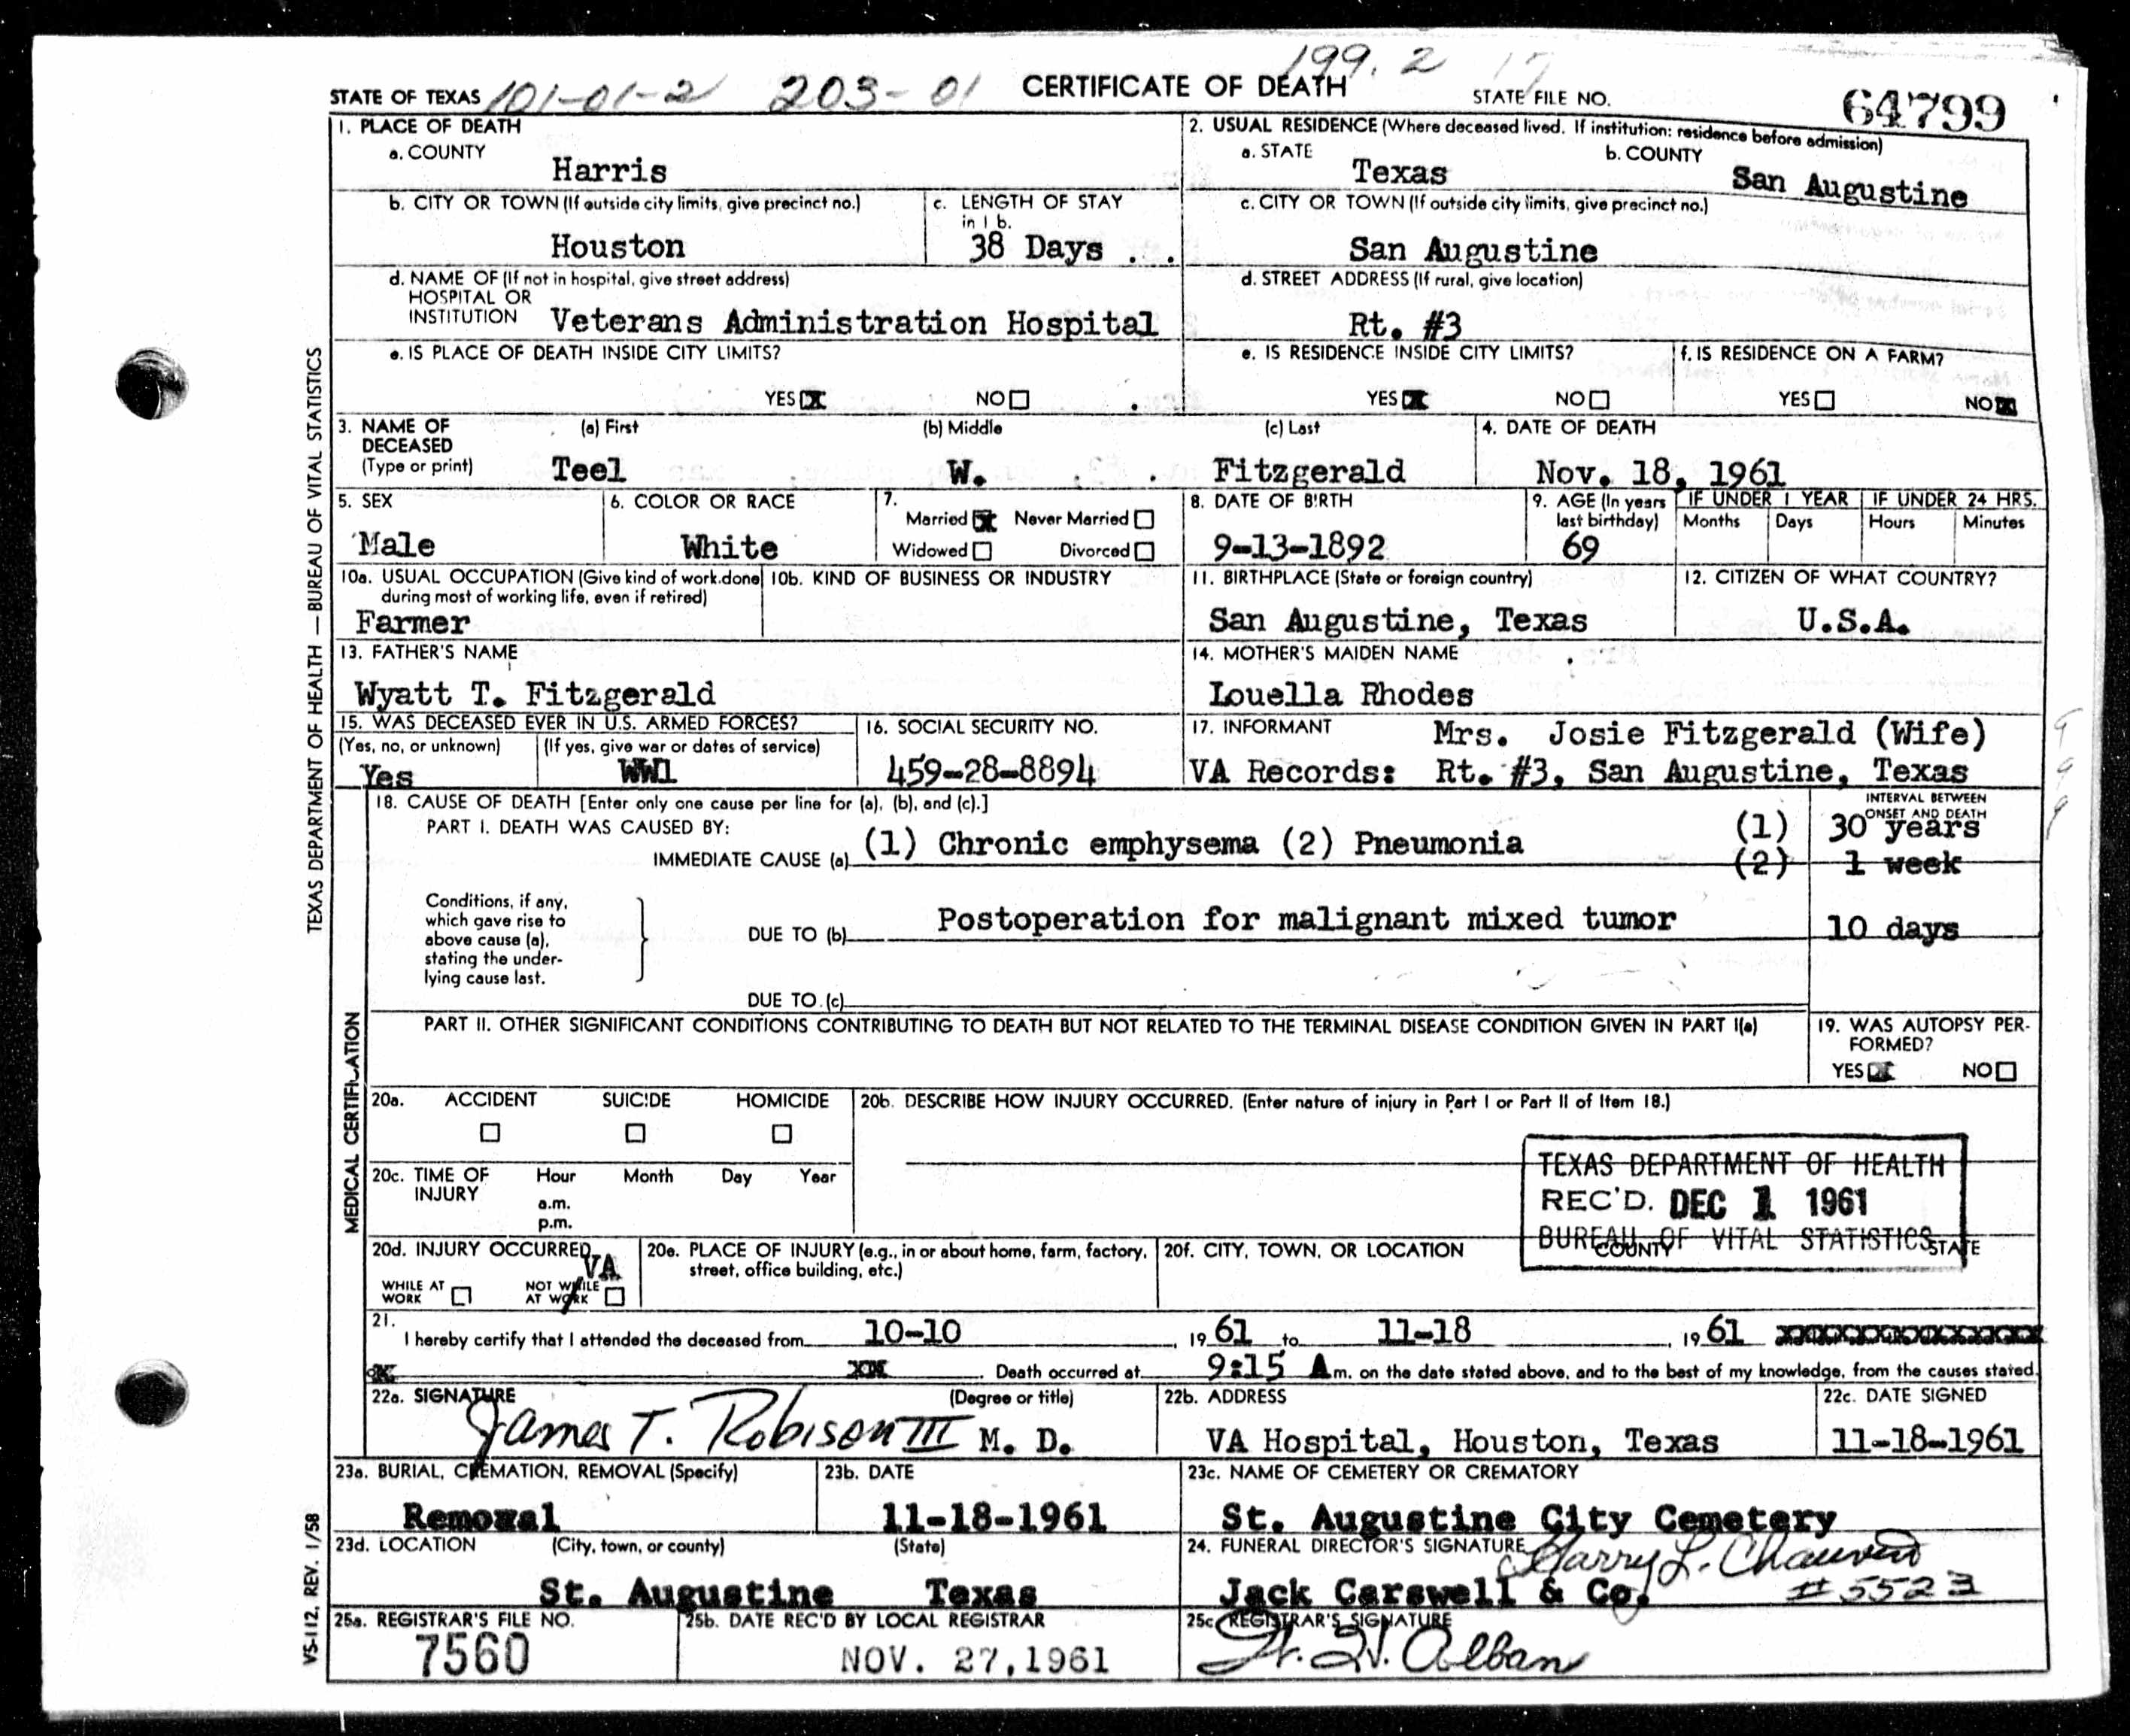 199.2 17
STATE OF TEXAS 101-01-2 203-01 CERTIFICATE OF DEATH STATE FILE NO. 64799
1. PLACE OF DEATH
a. COUNTY
Harris
2. USUAL RESIDENCE (Where deceased lived. If institution: residence before admission)
a. STATE Texas b. COUNTY San Augustine
b. CITY OR TOWN (If outside city limits, give precinct no.)
Houston
c. LENGTH OF STAY
in 1 b.
38 Days
c. CITY OR TOWN (If outside city limits, give precinct no.)
San Augustine
d. NAME OF (If not in hospital, give street address)
HOSPITAL OR
INSTITUTION Veterans Administration Hospital
d. STREET ADDRESS (If rural, give location)
Rt. #3
e. IS PLACE OF DEATH INSIDE CITY LIMITS?
YES NO
e. IS RESIDENCE INSIDE CITY LIMITS?
YES NO
f. IS RESIDENCE ON A FARM?
YES NO
3. NAME OF
DECEASED
(Type or print)
(a) First (b) Middle (c) Last
Teel W. Fitzgerald
4. DATE OF DEATH
Nov. 18, 1961
5. SEX
Male
6. COLOR OR RACE
White
7.
Married Never Married
Widowed Divorced
8. DATE OF BIRTH
9-13-1892
9. AGE (In years
last birthday)
69
IF UNDER 1 YEAR
Months Days
IF UNDER 24 HRS.
Hours Minutes
10a. USUAL OCCUPATION (Give kind of work done
during most of working life, even if retired)
Farmer
10b. KIND OF BUSINESS OR INDUSTRY
11. BIRTHPLACE (State or foreign country)
San Augustine, Texas
12. CITIZEN OF WHAT COUNTRY?
U.S.A.
13. FATHER'S NAME
Wyatt T. Fitzgerald
14. MOTHER'S MAIDEN NAME
Louella Rhodes
15. WAS DECEASED EVER IN U.S. ARMED FORCES?
(Yes, no, or unknown) (If yes, give war or dates of service)
Yes WW1
16. SOCIAL SECURITY NO.
459-28-8894
17. INFORMANT Mrs. Josie Fitzgerald (Wife)
VA Records: Rt. #3, San Augustine, Texas
999
18. CAUSE OF DEATH [Enter only one cause per line for (a), (b), and (c).]
INTERVAL BETWEEN
ONSET AND DEATH
PART I. DEATH WAS CAUSED BY:
IMMEDIATE CAUSE (a) (1) Chronic emphysema (2) Pneumonia
(1) 30 years
(2) 1 week
Conditions, if any,
which gave rise to
above cause (a),
stating the under-
lying cause last.
DUE TO (b) Postoperation for malignant mixed tumor 10 days
DUE TO (c)
PART II. OTHER SIGNIFICANT CONDITIONS CONTRIBUTING TO DEATH BUT NOT RELATED TO THE TERMINAL DISEASE CONDITION GIVEN IN PART I(a)
19. WAS AUTOPSY PER-
FORMED?
YES NO
20a. ACCIDENT SUICIDE HOMICIDE
20b. DESCRIBE HOW INJURY OCCURRED. (Enter nature of injury in Part I or Part II of Item 18.)
20c. TIME OF
INJURY
Hour Month Day Year
a.m.
p.m.
TEXAS DEPARTMENT OF HEALTH
REC'D. DEC 1 1961
BUREAU OF VITAL STATISTICS
20d. INJURY OCCURRED
VA
WHILE AT
WORK
NOT WHILE
AT WORK
20e. PLACE OF INJURY (e.g., in or about home, farm, factory,
street, office building, etc.)
20f. CITY, TOWN, OR LOCATION COUNTY STATE
21.
I hereby certify that I attended the deceased from 10-10, 19 61 to 11-18, 19 61
Death occurred at 9:15 A m. on the date stated above, and to the best of my knowledge, from the causes stated.
22a. SIGNATURE (Degree or title)
James T. Robison III M. D.
22b. ADDRESS
VA Hospital, Houston, Texas
22c. DATE SIGNED
11-18-1961
23a. BURIAL, CREMATION, REMOVAL (Specify)
Removal
23b. DATE
11-18-1961
23c. NAME OF CEMETERY OR CREMATORY
St. Augustine City Cemetery
23d. LOCATION (City, town, or county) (State)
St. Augustine Texas
24. FUNERAL DIRECTOR'S SIGNATURE
Harry L. Chauvin
Jack Carswell & Co. #5523
25a. REGISTRAR'S FILE NO.
7560
25b. DATE REC'D BY LOCAL REGISTRAR
NOV. 27, 1961
25c. REGISTRAR'S SIGNATURE
W. W. Alban
TEXAS DEPARTMENT OF HEALTH — BUREAU OF VITAL STATISTICS
MEDICAL CERTIFICATION
VS-112, REV. 1/58